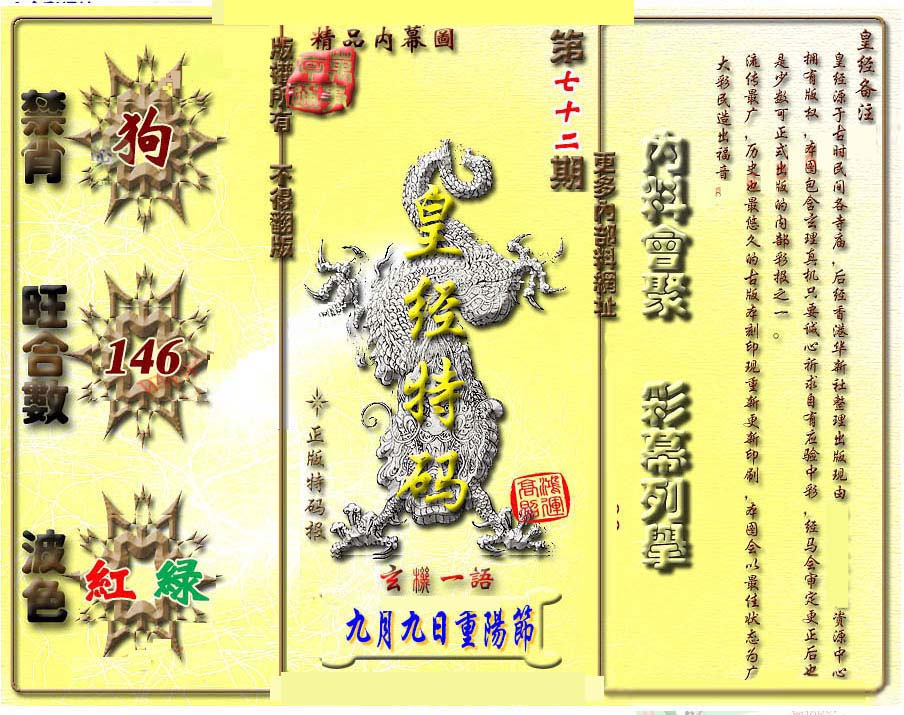 皇经备注
皇经源于古时民间各寺庙,后经香港华新社整理出版现由 资源中心
拥有版权,本图包含玄理真机只要诚心祈求自有应验中彩,经马会审定更正后也
是少数可正式出版的内部彩报之一。
流传最广,历史也最悠久的古版本刻印现重新更新印刷,本图会以最佳状态为广
大彩民造出福音
內料會聚
彩幕列舉
更多內部料網址
第七十二期
精品内幕圖
版權所有 不得翻版
皇经特码
正版特码报
鴻運
高照
玄機一語
九月九日重陽節
禁肖
狗
旺合數
146
波色
紅 綠